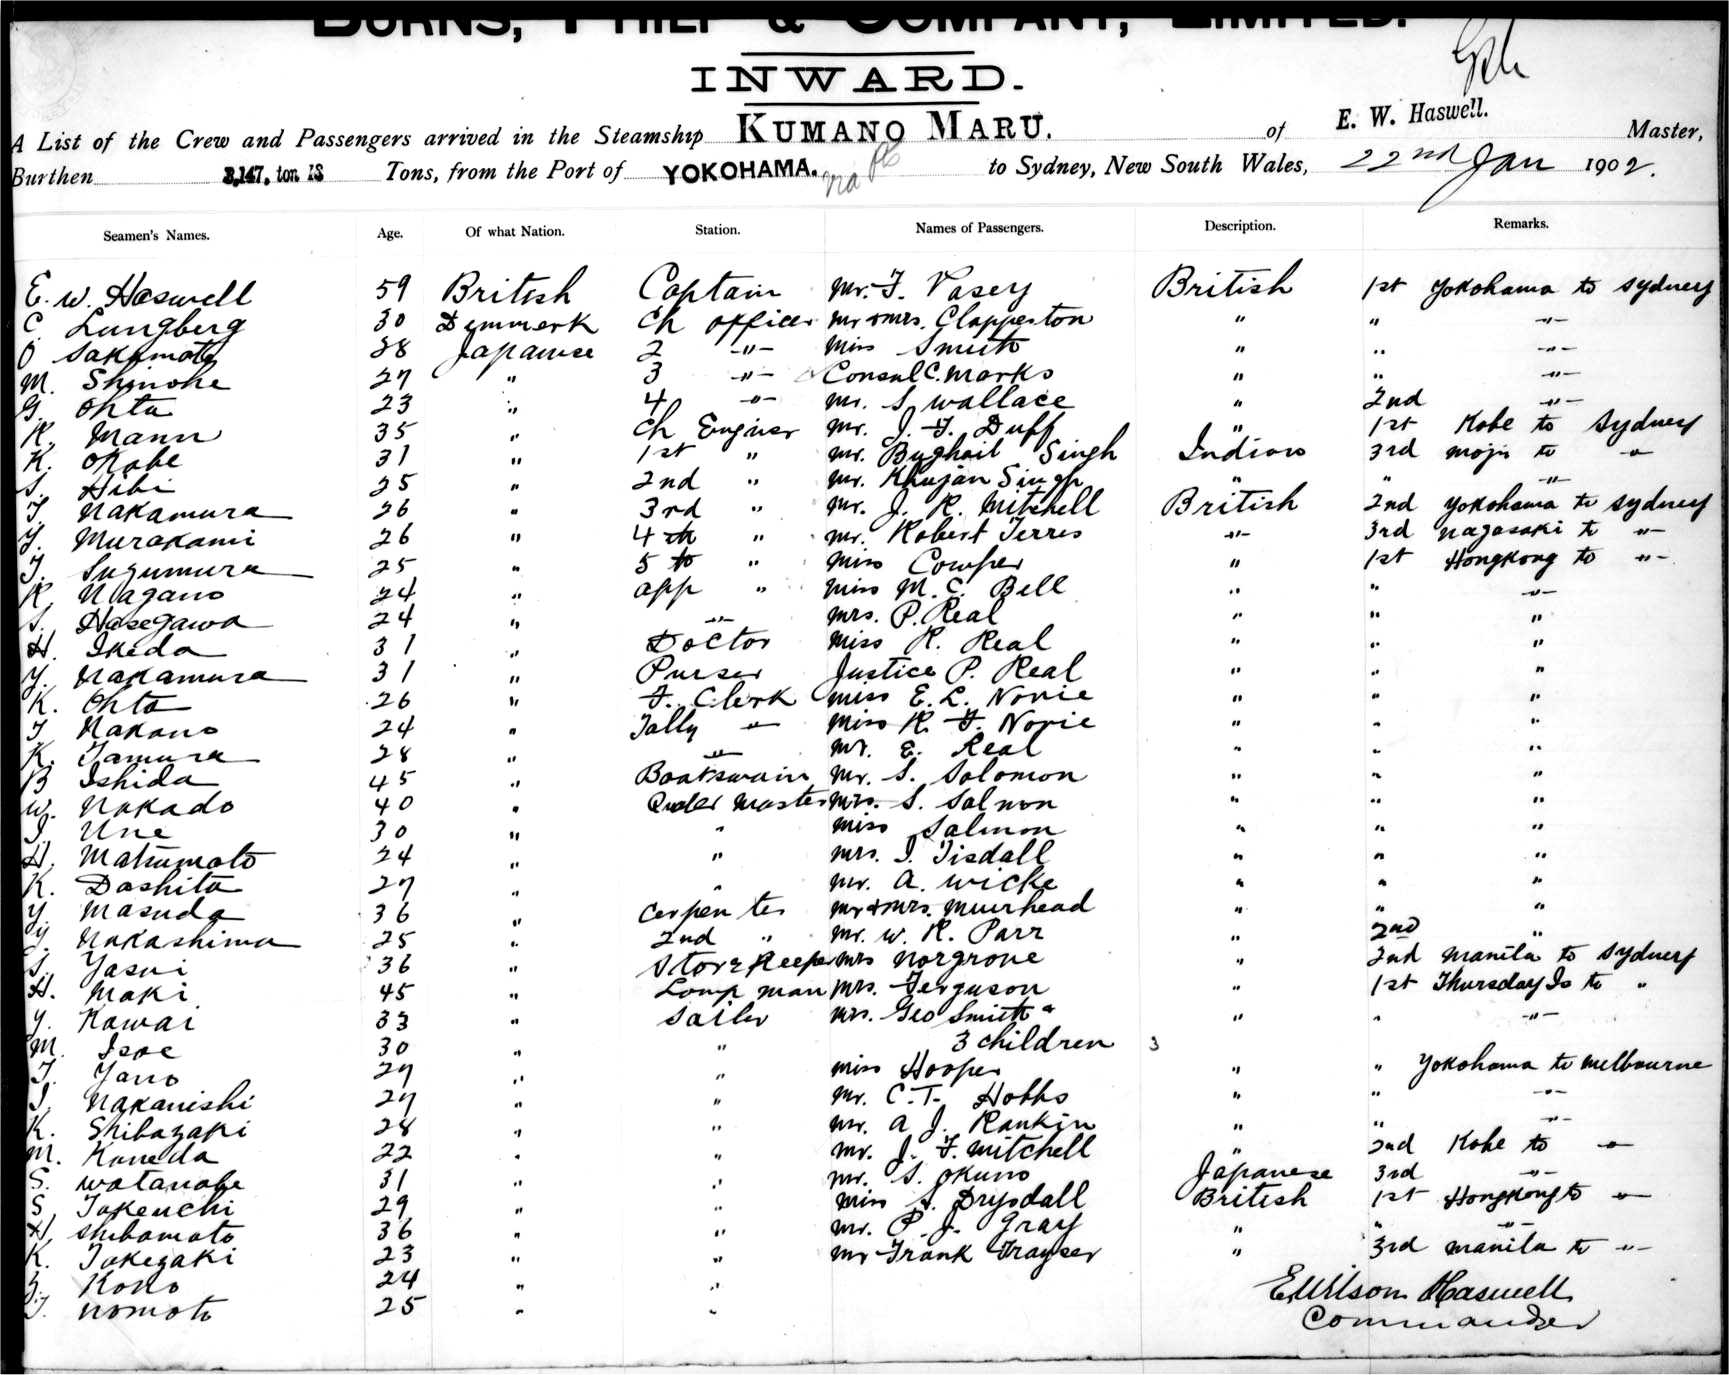 BURNS, PHILP & COMPANY, LIMITED.
INWARD.
A List of the Crew and Passengers arrived in the Steamship KUMANO MARU. of E. W. Haswell. Master,
Burthen 3,147, ton 13 Tons, from the Port of YOKOHAMA. to Sydney, New South Wales, 22nd Jan 1902.
Seamen's Names. Age. Of what Nation. Station. Names of Passengers. Description. Remarks.
E. W. Haswell 59 British Captain Mr. F. Vasey British 1st Yokohama to Sydney
C Lungberg 30 Denmerk Ch officer Mr & Mrs. Clapperton " " -"-
J Sakamoto 28 Japanese 2 -"- Miss Smith " " -"-
M. Shinohe 27 " 3 -"- Consul C. Marks " " -"-
G. Ohta 23 " 4 -"- Mr. S. Wallace " 2nd -"-
K. Mann 35 " Ch Enginer Mr. J. F. Duff " 1st Kobe to Sydney
K. Okabe 31 " 1st " Mr. Byghail Singh Indian 3rd Moji to -"-
S. Hibi 25 " 2nd " Mr. Khujan Singh " " -"-
T. Nakamura 26 " 3rd " Mr. J. R. Mitchell British 2nd Yokohama to Sydney
Y. Murakami 26 " 4th " Mr. Robert Terres -"- 3rd Nagasaki to -"-
T. Sugumura 25 " 5th " Miss Cowper " 1st Hongkong to -"-
K. Nagano 24 " app " Miss M. C. Bell " " -"-
S. Hasegawa 24 " -"- Mrs. P. Real " " "
H. Ikeda 31 " Doctor Miss K. Real " " "
Y. Nakamura 31 " Purser Justice P. Real " " "
K. Ohta 26 " F. Clerk Miss E. L. Norie " " "
T Nakano 24 " Tally -"- Miss K. F. Norie " " "
K. Tamura 28 " -"- Mr. E. Real " " "
B Ishida 45 " Boatswain Mr. S. Solomon " " "
W. Nakado 40 " Master Mrs. S. Salmon " " "
I. Une 30 " " Miss Salmon " " "
H. Matsumoto 24 " " Mrs. I. Tisdall " " "
K. Dashita 27 " " Mr. A. Wicke " " "
Y. Masuda 36 " Carpenter Mr & Mrs. Muirhead " " "
Y. Nakashima 25 " 2nd " Mr. W. K. Parr " 2nd "
S. Yasui 36 " Store Keeper Mrs Norgrove " 2nd Manila to Sydney
H. Maki 45 " Lamp man Mrs. Ferguson " 1st Thursday Is to "
Y. Kawai 33 " Sailor Mrs. Geo Smith & " " -"-
M. Isoe 30 " " 3 children 3
T. Yano 27 " " Miss Hooper " " Yokohama to Melbourne
I. Nakanishi 27 " " Mr. C. T. Hobbs " " -"-
K. Shibazaki 28 " " Mr. A J. Rankin " " -"-
M. Kaneda 22 " " Mr. J. F. Mitchell " 2nd Kobe to -"-
S. Watanabe 31 " " Mr. S. Okuno Japanese 3rd -"-
S. Takeuchi 29 " " Miss A. Drysdall British 1st Hongkong to -"-
H. Shibamoto 36 " " Mr. P. J. Gray " " -"-
K. Takezaki 23 " " Mr Frank Frayser " 3rd Manila to -"-
Z. Kono 24 " "
T. Nomoto 25 " "
E Wilson Haswell
Commander